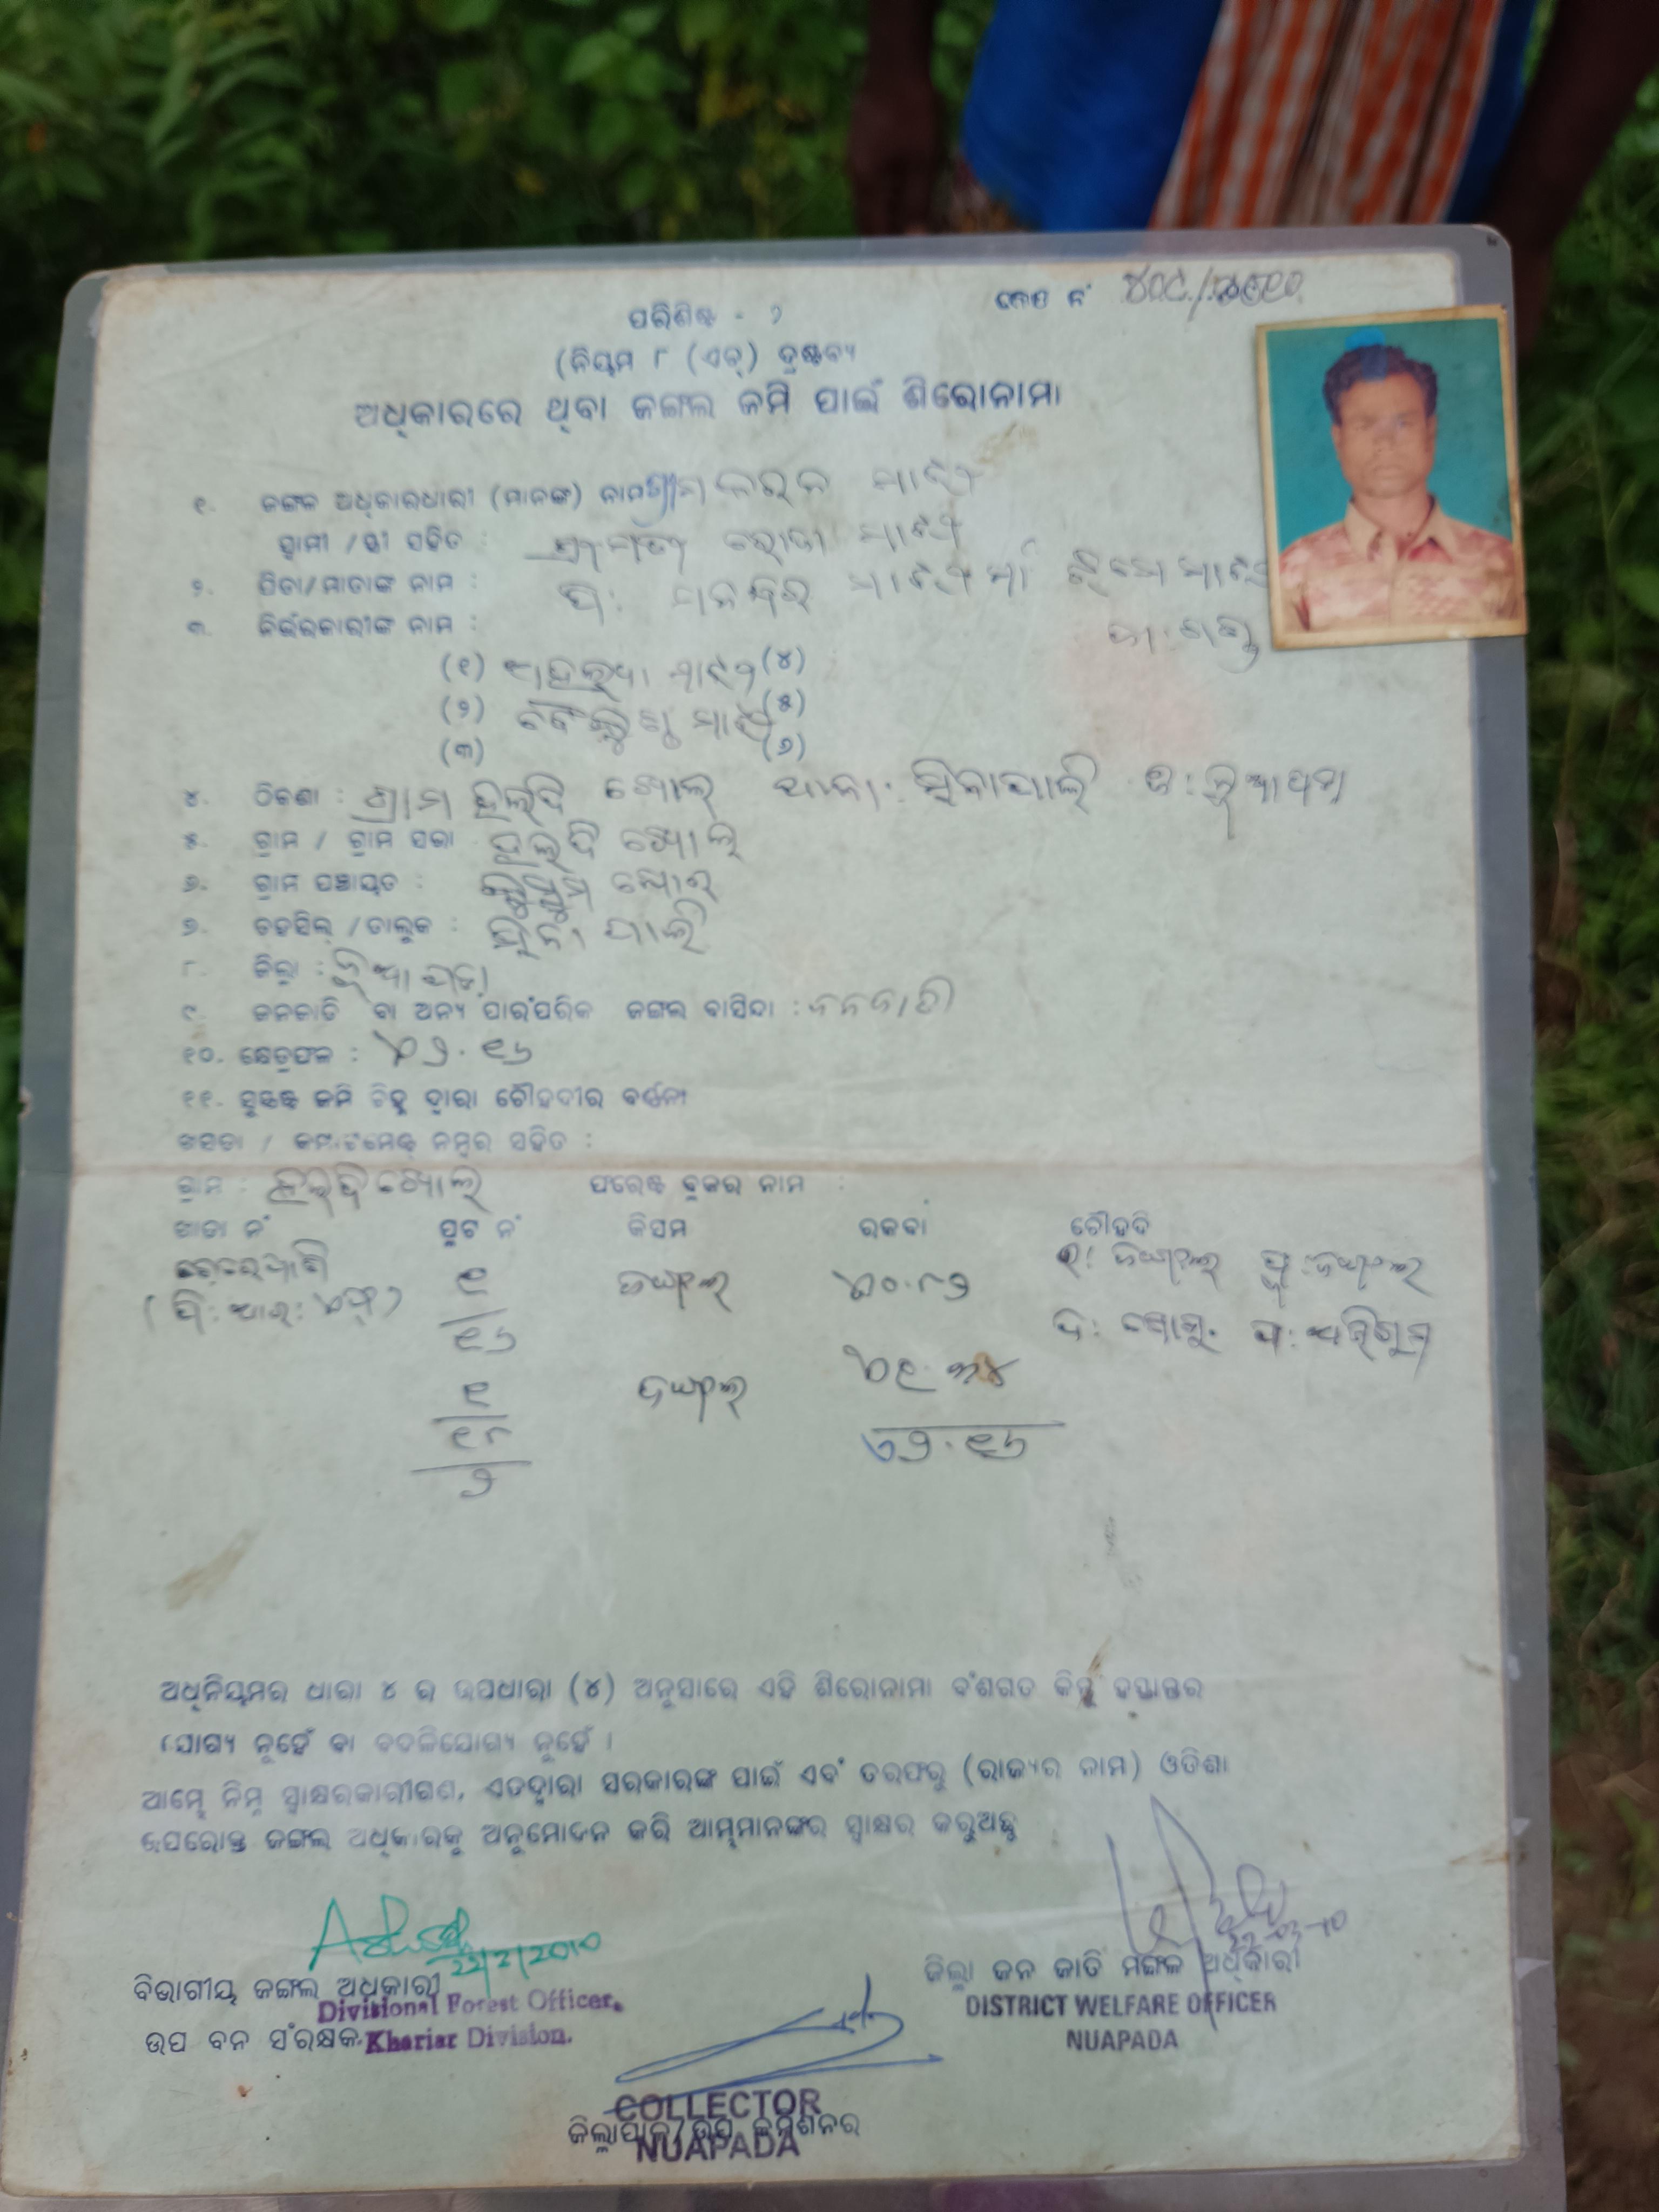 କେଶ ନଂ
ପରିଶିଷ୍ଟ - ୨
(ନିୟମ ୮ (ଏଚ୍) ଦ୍ରଷ୍ଟବ୍ୟ
ଅଧିକାରରେ ଥିବା ଜଙ୍ଗଲ ଜମି ପାଇଁ ଶିରୋନାମା
୧. ଜଙ୍ଗଲ ଅଧିକାରଧାରୀ (ମାନଙ୍କ) ନାମ ମାଝି
ସ୍ଵାମୀ / ସ୍ତ୍ରୀ ସହିତ : ଶ୍ରୀମତୀ ମାଝି
୨. ପିତା/ମାତାଙ୍କ ନାମ : ପି: ମାଝି
୩. ନିର୍ଭରକାରୀଙ୍କ ନାମ :
(୧) ଅହଲ୍ୟା ମାଝି (୪)
(୨) ମାଝି (୫)
(୩) (୬)
୪. ଠିକଣା : ଗ୍ରାମ ହଲଦି ଖୋଲ୍ ଥାନା: ସିନାପାଲି ଜି: ନୂଆପଡ଼ା
୫. ଗ୍ରାମ / ଗ୍ରାମ ସଭା ହଲଦି ଖୋଲ୍
୬. ଗ୍ରାମ ପଞ୍ଚାୟତ : ଖୋଲ୍
୭. ତହସିଲ୍ /ତାଲୁକ : ସିନାପାଲି
୮. ଜିଲ୍ଲା : ନୂଆପଡ଼ା
୯. ଜନଜାତି ବା ଅନ୍ୟ ପାରଂପରିକ ଜଙ୍ଗଲ ବାସିନ୍ଦା : ଜନଜାତି
୧୦. କ୍ଷେତ୍ରଫଳ : ୨.୧୬
୧୧. ସୁସ୍ପଷ୍ଟ ଜମି ଚିହ୍ନ ଦ୍ଵାରା ଚୌହଦୀର ବର୍ଣ୍ଣନା
ଖସଡା / କମ୍ପାଟମେଣ୍ଟ ନମ୍ବର ସହିତ :
ଗ୍ରାମ : ହଲ୍ଦି ଖୋଲ୍ ଫରେଷ୍ଟ ବ୍ଲକର ନାମ :
ଖାତା ନଂ ପ୍ଲଟ ନଂ କିସମ ରକବା ଚୌହଦି
୧ ଜଙ୍ଗଲ ୦.୮୨ ଉ: ଜଙ୍ଗଲ ପୂ: ଜଙ୍ଗଲ
୧୬
୧ ଜଙ୍ଗଲ ୧.୩୪
୧୮ ୨.୧୬
୨
ଅଧିନିୟମର ଧାରା ୪ ର ଉପଧାରା (୪) ଅନୁସାରେ ଏହି ଶିରୋନାମା ବଂଶଗତ କିନ୍ତୁ ହସ୍ତାନ୍ତର
ଯୋଗ୍ୟ ନୁହେଁ ବା ବଦଳିଯୋଗ୍ୟ ନୁହେଁ ।
ଆମ୍ଭେ ନିମ୍ନ ସ୍ଵାକ୍ଷରକାରୀଗଣ, ଏତଦ୍ଵାରା ସରକାରଙ୍କ ପାଇଁ ଏବଂ ତରଫରୁ (ରାଜ୍ୟର ନାମ) ଓଡିଶା
ଉପରୋକ୍ତ ଜଙ୍ଗଲ ଅଧିକାରକୁ ଅନୁମୋଦନ କରି ଆମ୍ଭମାନଙ୍କର ସ୍ଵାକ୍ଷର କରୁଅଛୁ
22/2/2010
ବିଭାଗୀୟ ଜଙ୍ଗଲ ଅଧିକାରୀ
Divisional Forest Officer.
ଉପ ବନ ସଂରକ୍ଷକ
Khariar Division.
ଜିଲ୍ଲା ଜନ ଜାତି ମଙ୍ଗଳ ଅଧିକାରୀ
DISTRICT WELFARE OFFICER
NUAPADA
COLLECTOR
ଜିଲ୍ଲାପାଳ/ଉପ କମିଶନର
NUAPADA